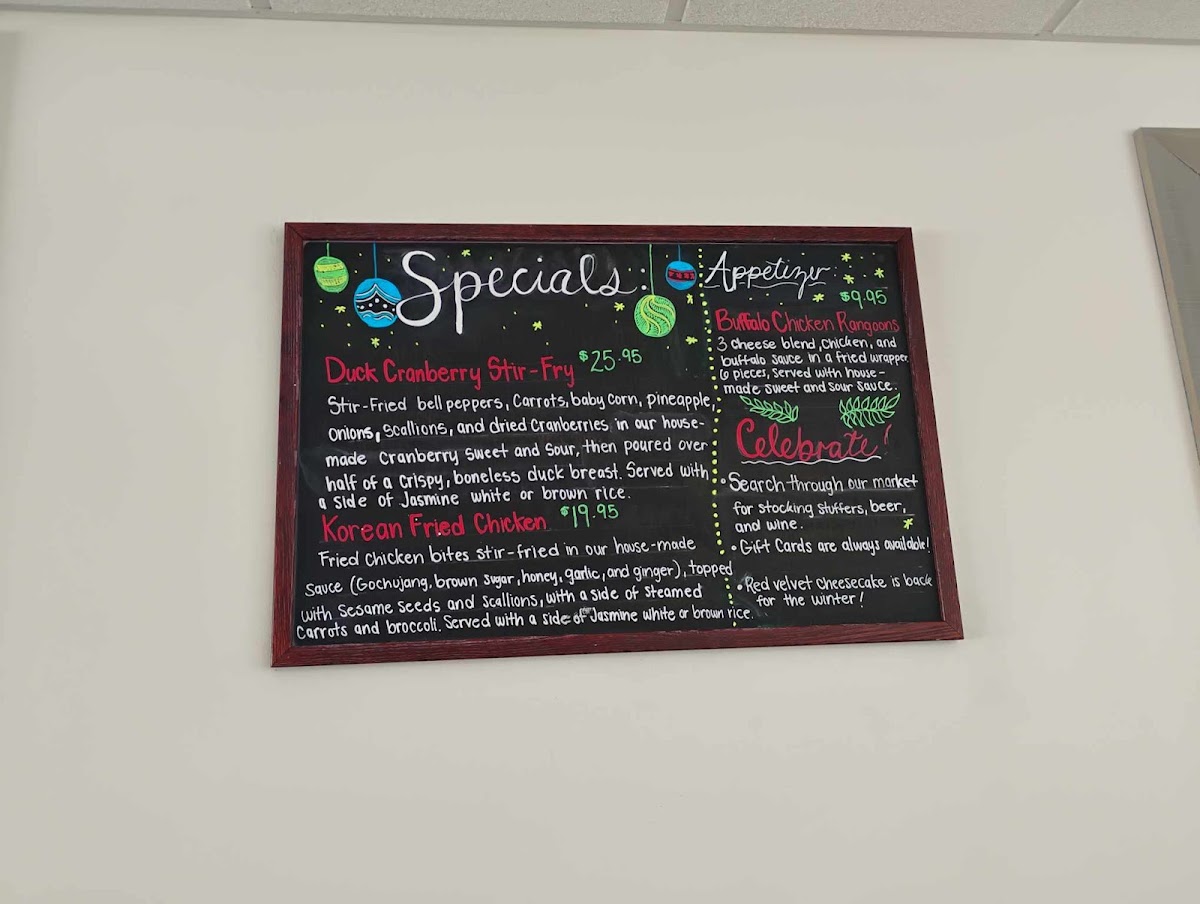 Specials:
Duck Cranberry Stir-Fry $25.95
Stir-Fried bell peppers, Carrots, baby corn, pineapple,
onions, scallions, and dried cranberries in our house-
made cranberry sweet and sour, then poured over
half of a crispy, boneless duck breast. Served with
a side of Jasmine white or brown rice.
Korean Fried Chicken $19.95
Fried chicken bites stir-fried in our house-made
sauce (Gochujang, brown sugar, honey, garlic, and ginger), topped
with sesame seeds and scallions, with a side of steamed
carrots and broccoli. Served with a side of Jasmine white or brown rice.
Appetizer:
$9.95
Buffalo Chicken Rangoons
3 cheese blend, chicken, and
buffalo sauce in a fried wrapper.
6 pieces, served with house-
made sweet and sour sauce.
Celebrate!
• Search through our market
for stocking stuffers, beer,
and wine.
• Gift Cards are always available!
• Red velvet cheesecake is back
for the winter!